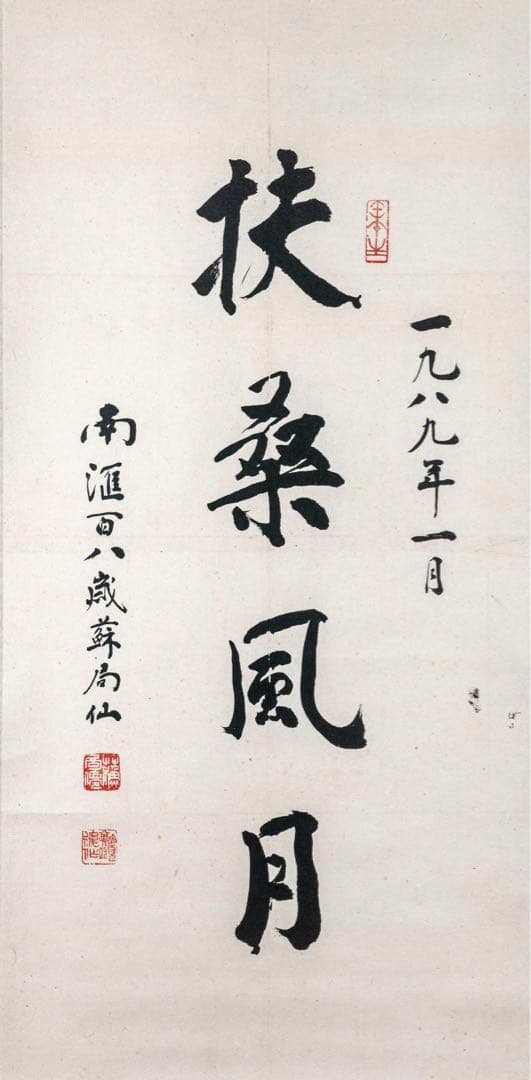 一九八九年一月
扶桑風月
南滙百八歲蘇局仙